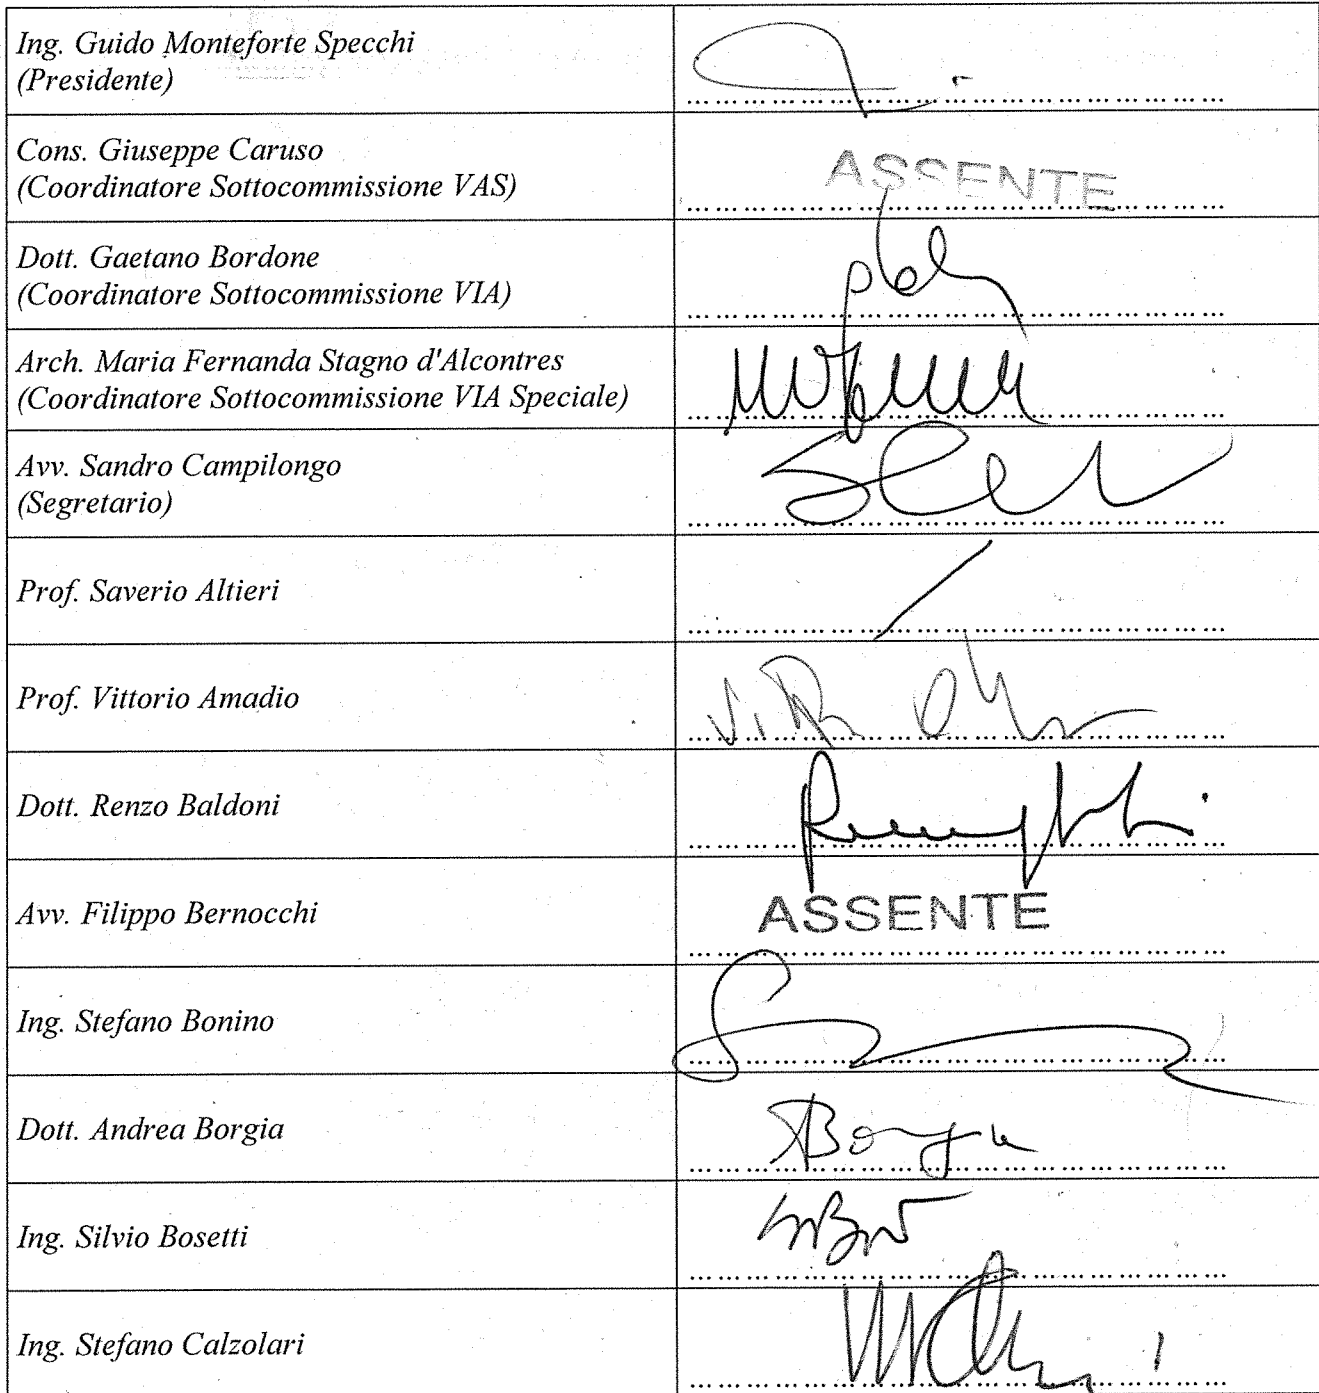 Ing. Guido Monteforte Specchi
(Presidente)
Cons. Giuseppe Caruso
(Coordinatore Sottocommissione VAS)
ASSENTE
Dott. Gaetano Bordone
(Coordinatore Sottocommissione VIA)
Arch. Maria Fernanda Stagno d'Alcontres
(Coordinatore Sottocommissione VIA Speciale)
Avv. Sandro Campilongo
(Segretario)
Prof. Saverio Altieri
Prof. Vittorio Amadio
Dott. Renzo Baldoni
Avv. Filippo Bernocchi
ASSENTE
Ing. Stefano Bonino
Dott. Andrea Borgia
Ing. Silvio Bosetti
Ing. Stefano Calzolari